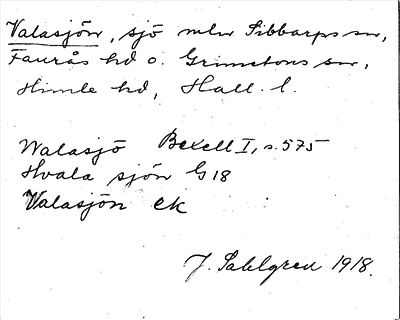 Valasjön, sjö mln Sibbarps sn,
Faurås hd o. Grimetons sn,
Himle hd, Hall. l.
Walasjö Bexell I, s. 575
Hvala sjön G 18
Valasjön ek
J. Sahlgren 1918.